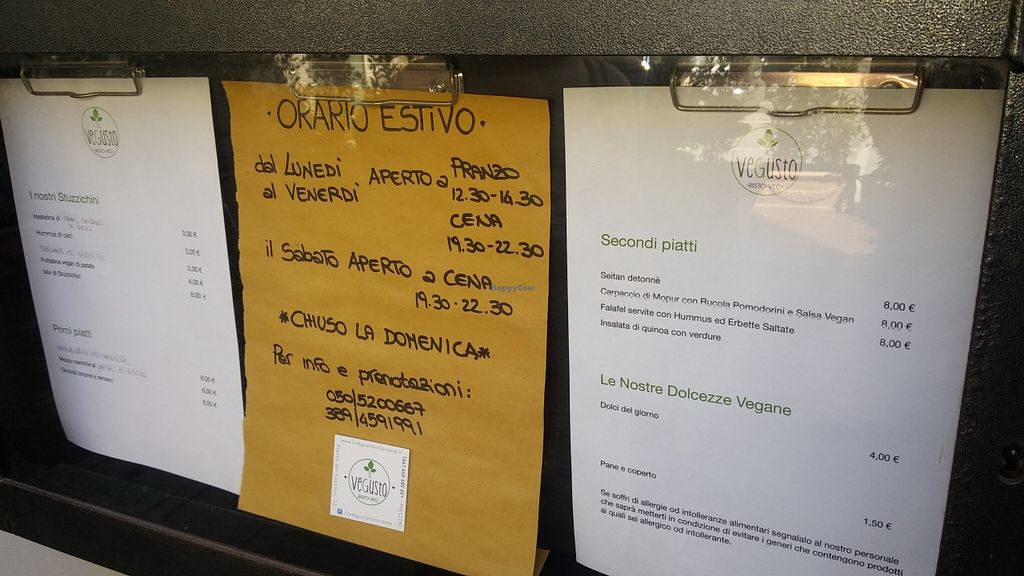 veGusto
I nostri Stuzzichini
Insalatina di
3,00 €
Hummus di ceci
3,00 €
Frittatina vegan di patate
3,00 €
Mix di Stuzzichini
4,00 €
8,00 €
Primi piatti
Mezze maniche al
8,00 €
Gnocchi limone e zenzero
8,00 €
8,00 €
·ORARIO ESTIVO·
dal LUNEDI al VENERDI APERTO a PRANZO
12.30-14.30
CENA
19.30-22.30
il SABATO APERTO a CENA
19.30-22.30
*CHIUSO LA DOMENICA*
Per info e prenotazioni:
050/5200667
389/4591991
veGusto
RISTO·VEG
HappyCow
veGusto
·RISTO·VEG·
Secondi piatti
Seitan detonnè
8,00 €
Carpaccio di Mopur con Rucola Pomodorini e Salsa Vegan
8,00 €
Falafel servite con Hummus ed Erbette Saltate
8,00 €
Insalata di quinoa con verdure
Le Nostre Dolcezze Vegane
Dolci del giorno
4,00 €
Pane e coperto
1,50 €
Se soffri di allergie od intolleranze alimentari segnalalo al nostro personale
che saprà metterti in condizione di evitare i generi che contengono prodotti
ai quali sei allergico od intollerante.